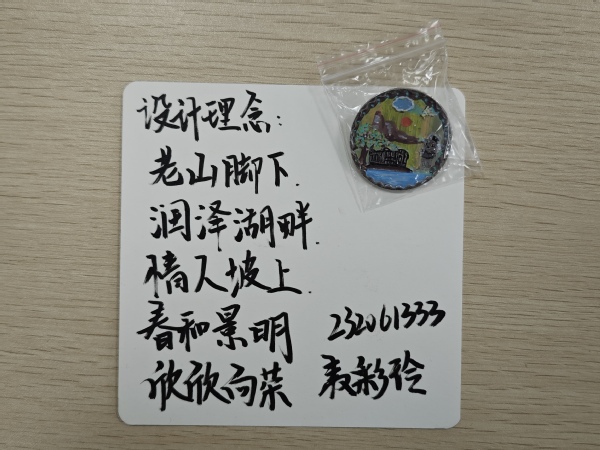 设计理念:
老山脚下.
润泽湖畔.
情人坡上.
春和景明
欣欣向荣
232061333
袁彩玲